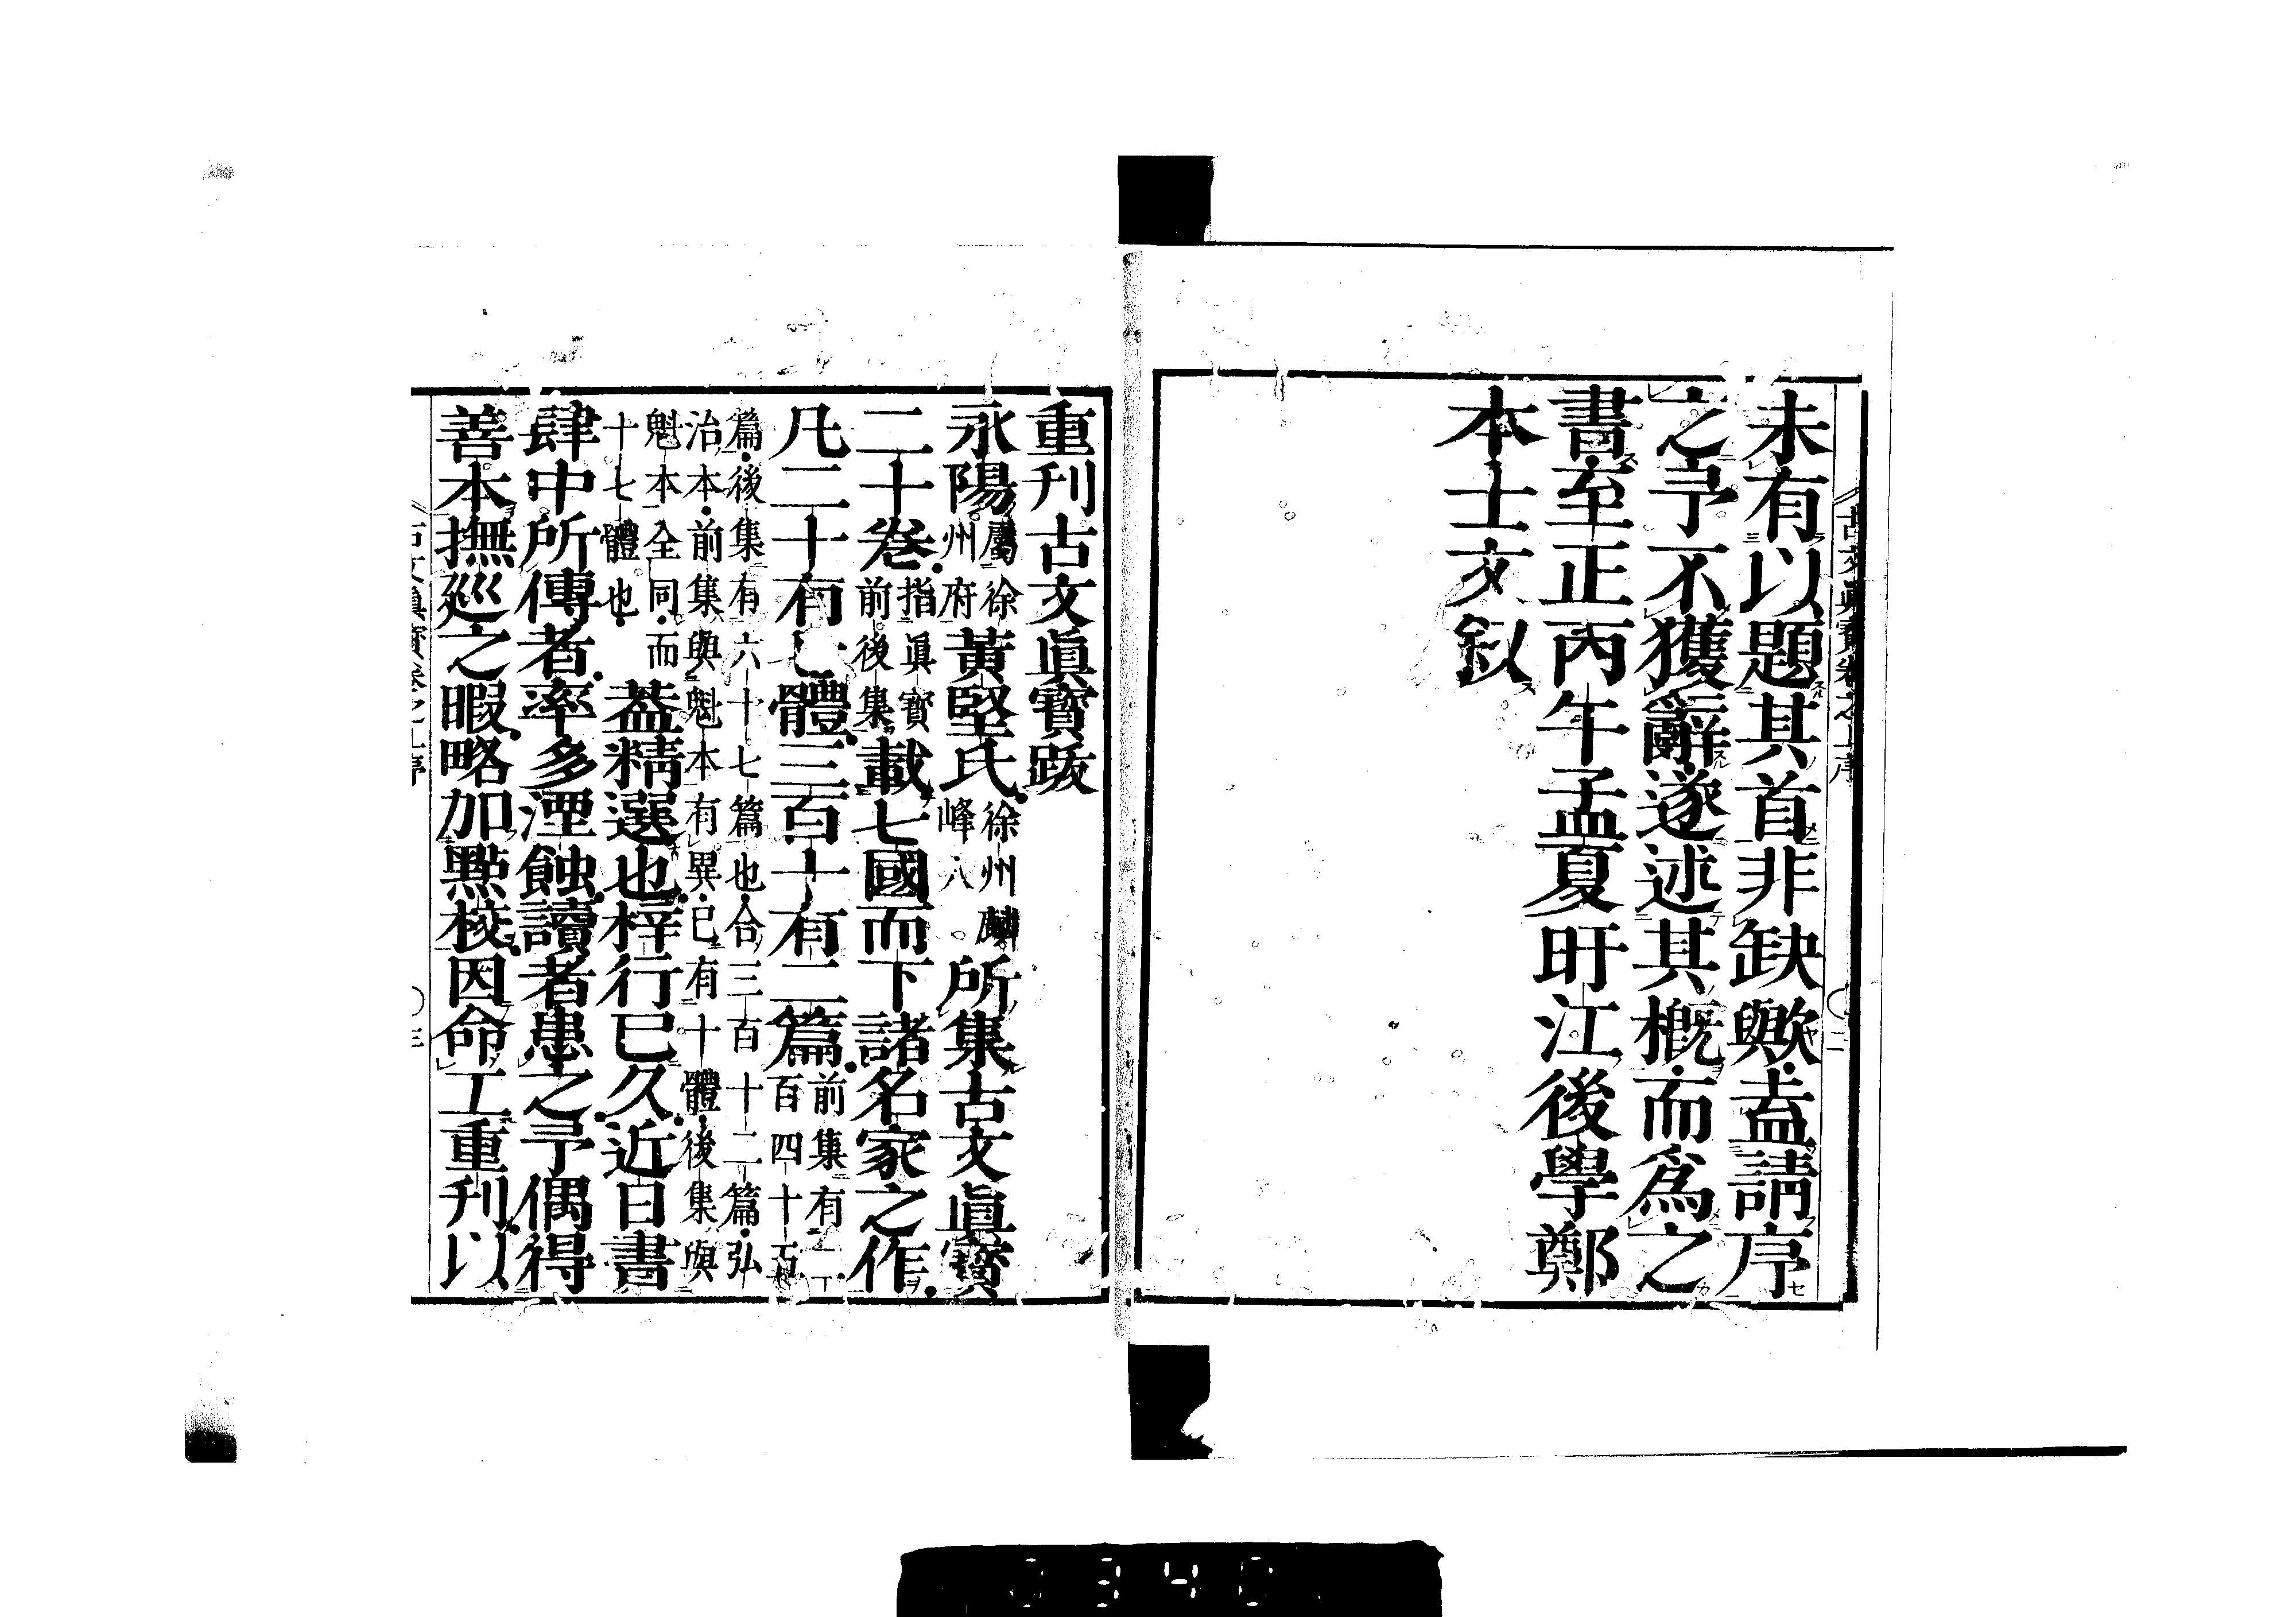 未有以題其首非缺歟盍請序
之予不獲辭遂述其槪而爲之
書至正丙午孟夏旴江後學鄭
本士文叙
重刊古文眞寳跋
永陽屬徐州府黃堅氏徐州麟峰八所集古文眞寳
二十卷指眞寳前後集載七國而下諸名家之作
凡二十有七體三百十有二篇前集有二百四十五
篇後集有六十七篇也合三百十二篇弘
治本前集與魁本有異已有十體後集與
魁本全同而
十七體也
葢精選也梓行已久近日書
肆中所傳者率多湮蝕讀者患之予偶得
善本撫巡之暇略加㸃校因命工重刊以